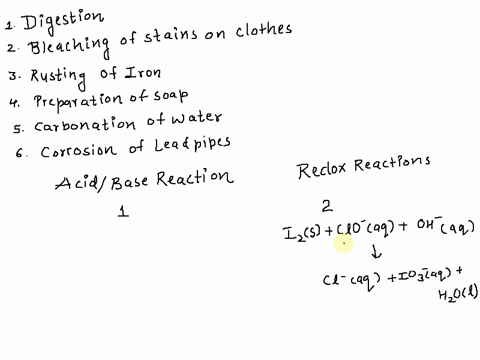 1. Digestion
2. Bleaching of stains on clothes
3. Rusting of Iron
4. Preparation of soap
5. Carbonation of water
6. Corrosion of Lead pipes
Acid/Base Reaction
1
Redox Reactions
2
I₂(s) + ClO⁻(aq) + OH⁻(aq)
↓
Cl⁻(aq) + IO₃⁻(aq) +
H₂O(l)